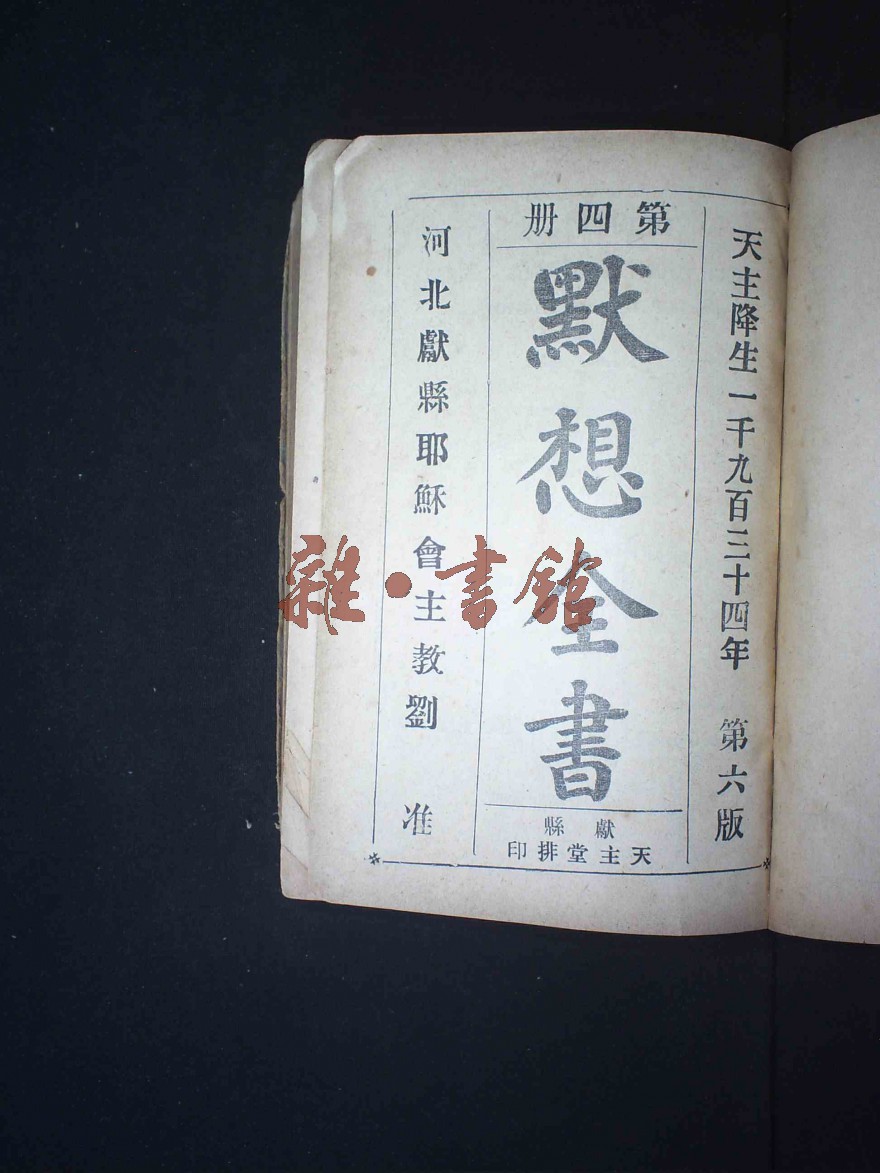 天主降生一千九百三十四年 第六版
第四册
默想全書
獻縣
天主堂排印
河北獻縣耶穌會主教劉 准
雜·書館